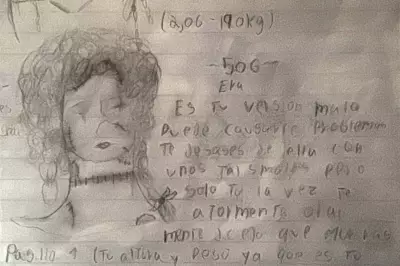 (2,06-190kg)
-506-
Era
Es tu version mala
Puede causarte Problemas
Te desases de ella con
unos talismanes pero
solo tu la vez te
atormenta
mente
que
Pasillo 1 (Tu altura y Peso ya que es tu